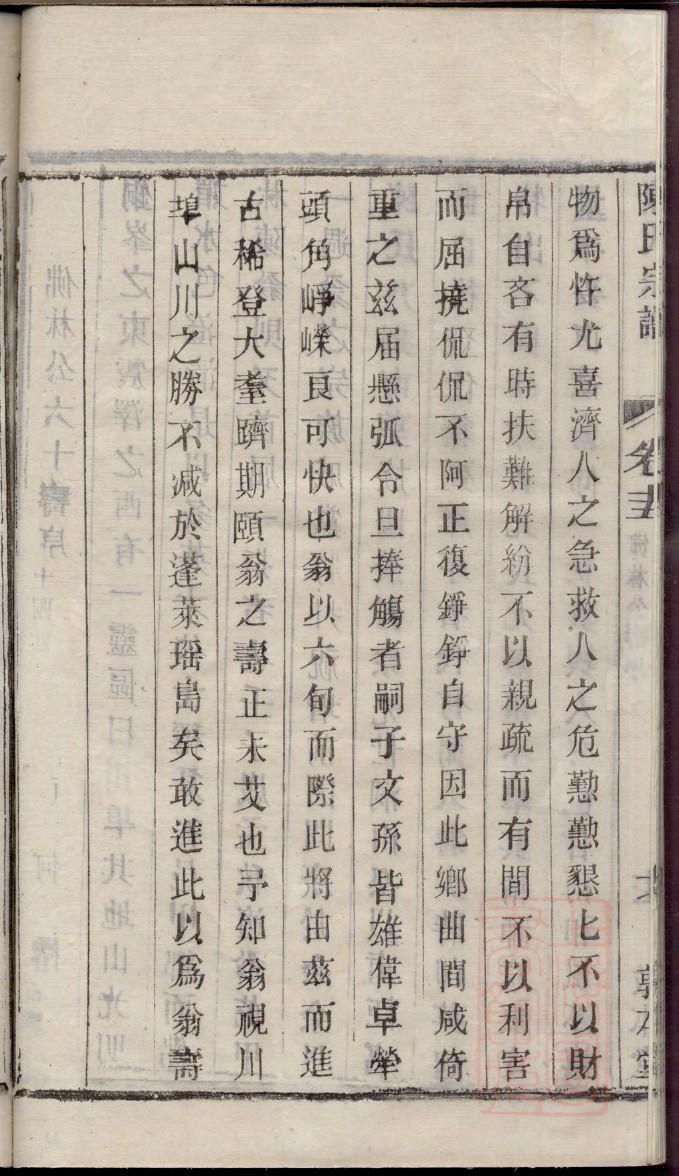 陳氏宗譜 卷
物爲忤尤喜濟人之急救人之危懃懃懇匕不以財
帛自吝有時扶難解紛不以親疏而有間不以利害
而屈撓侃侃不阿正復錚錚自守因此鄉曲間咸倚
重之兹届懸弧令旦捧觴者嗣子文孫皆雄偉卓犖
頭角崢嶸良可快也翁以六旬而際此將由兹而進
古稀登大耋躋期頤翁之壽正未艾也予知翁視川
埠山川之勝不减於蓬萊瑶島矣敢進此以爲翁壽